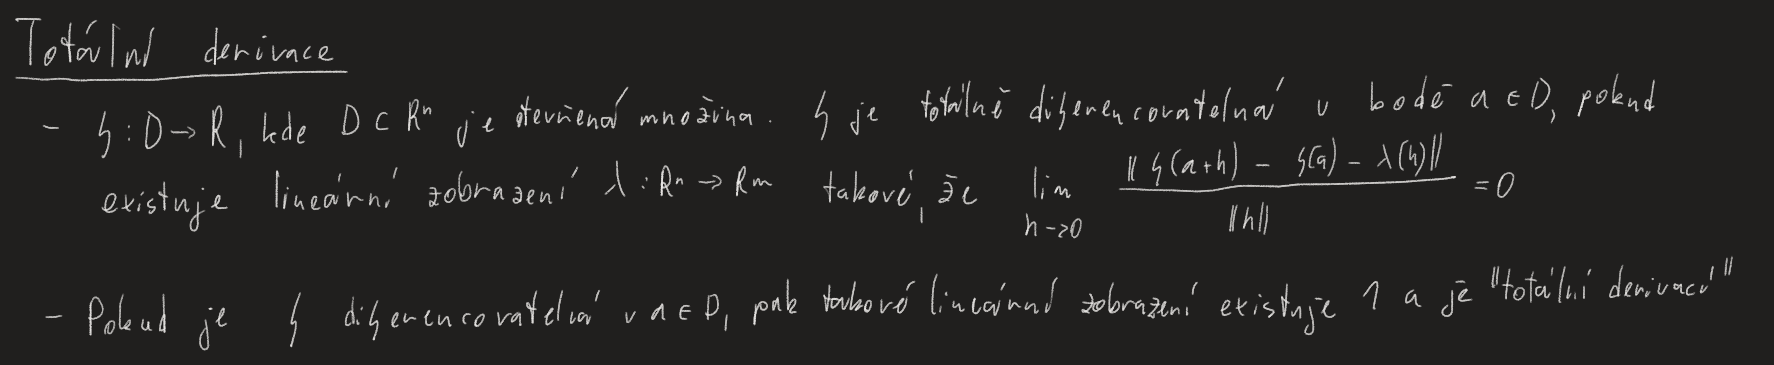 Totální derivace
- f : D → R, kde D ⊂ Rⁿ je otevřená množina. f je totálně diferencovatelná v bodě a ∈ D, pokud
existuje lineární zobrazení λ : Rⁿ → Rᵐ takové, že lim h→0 ‖f(a+h) - f(a) - λ(h)‖ / ‖h‖ = 0
- Pokud je f diferencovatelná v a ∈ D, pak takové lineární zobrazení existuje 1 a je "totální derivací"